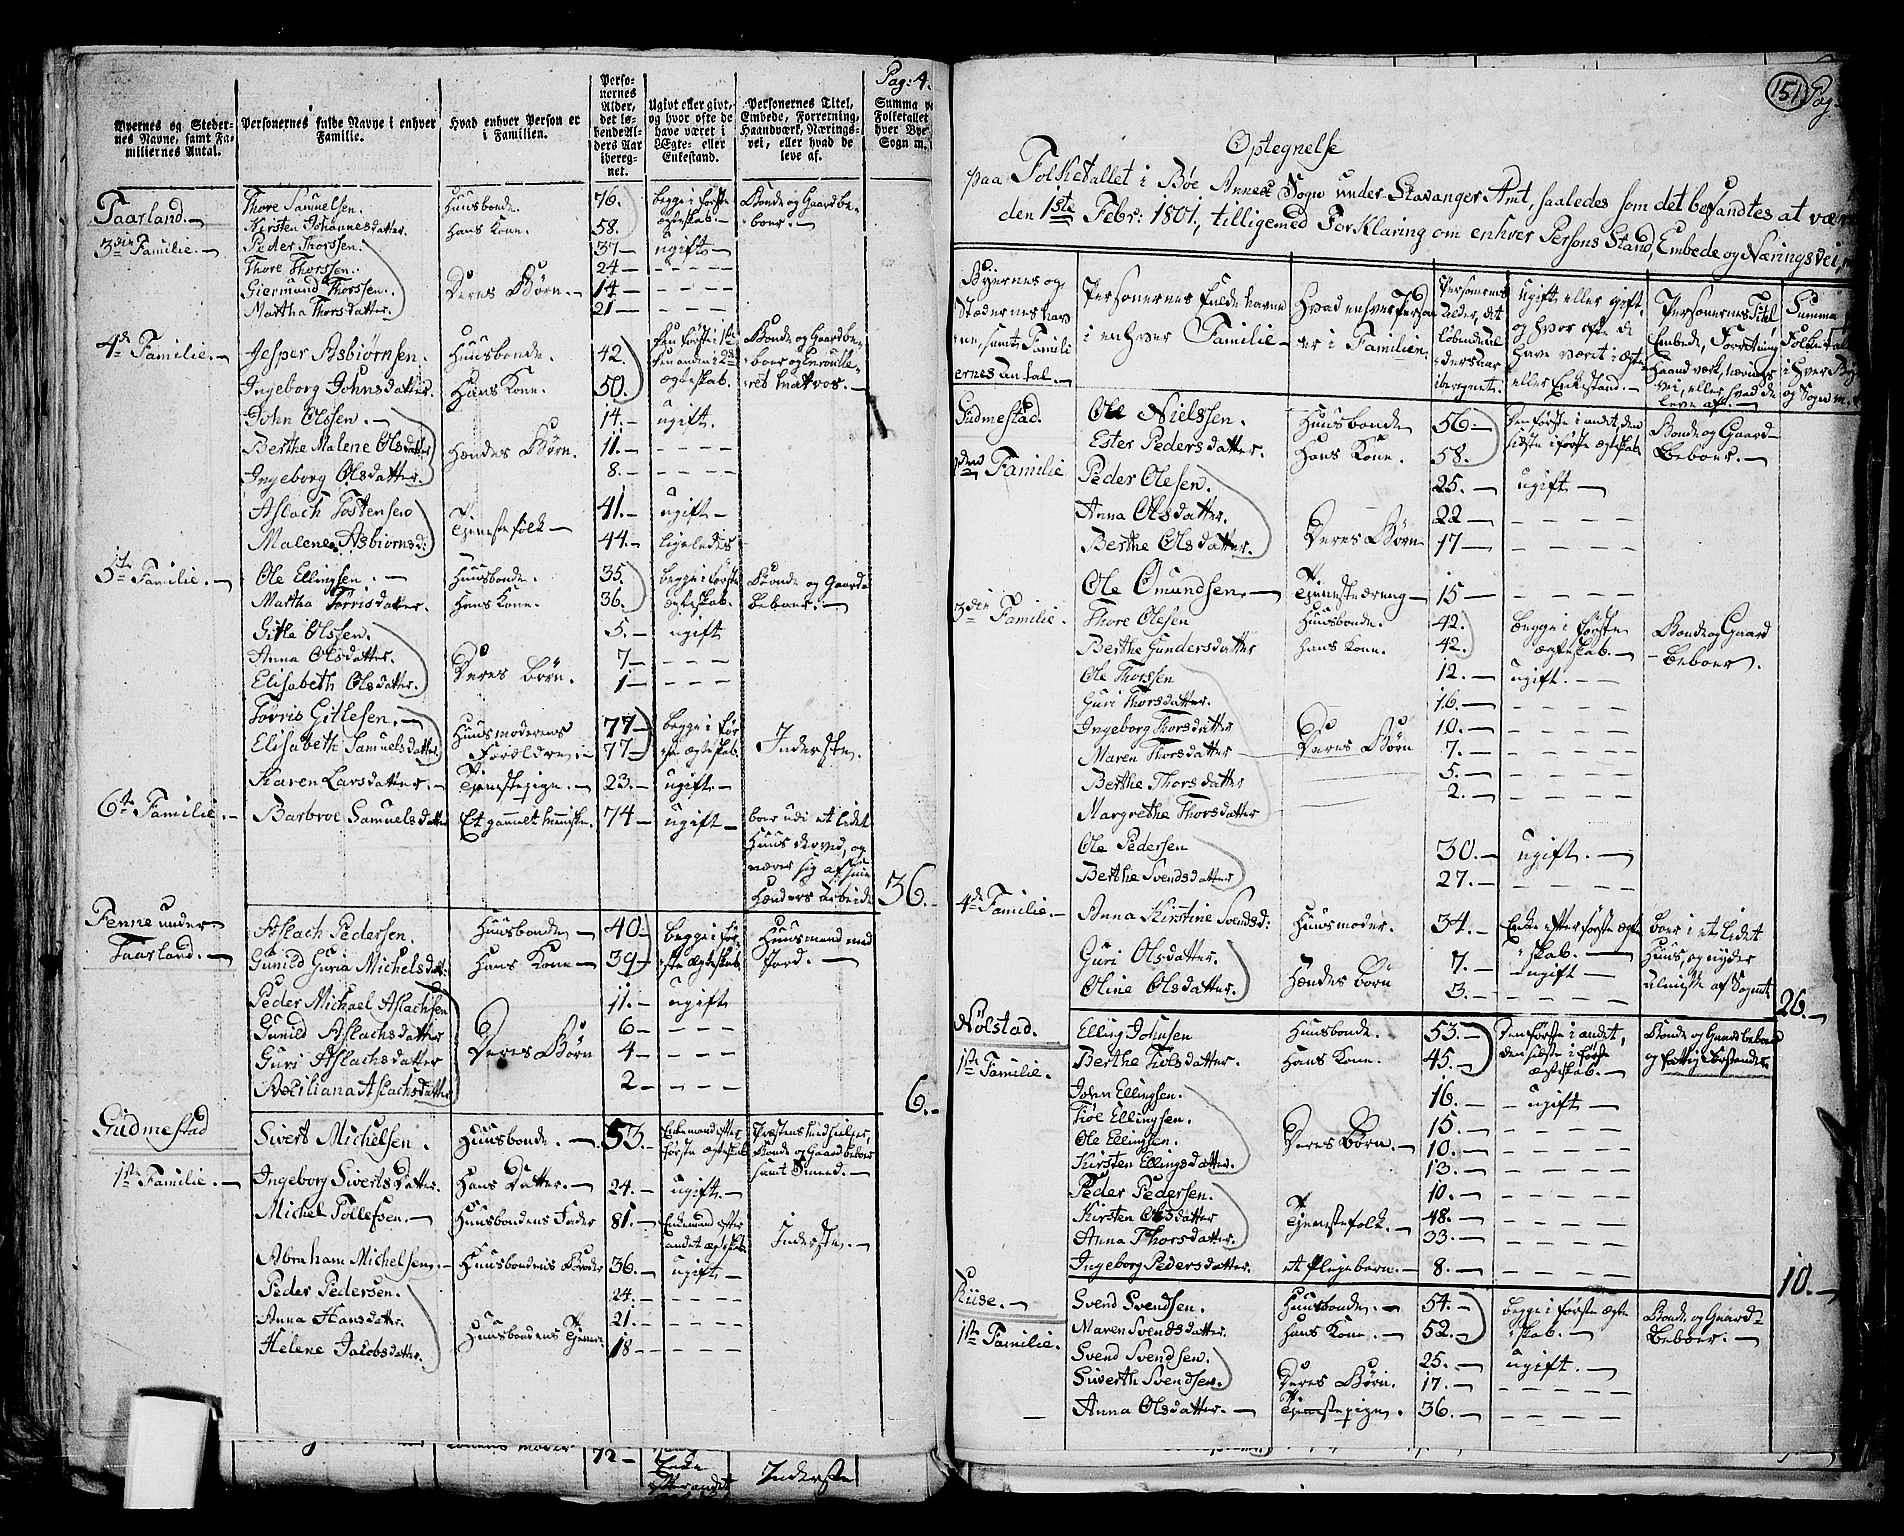 Pag: 4.
Byernes og Stedernes Navne, samt Familiernes Antal.
Personernes fulde Navne i enhver Familie.
Hvad enhver Person er i Familien.
Personernes Alder, det løbendeAlders Aar iberegnet.
Ugivt eller givt, og hvor ofte de have været i Ægte- eller Enkestand.
Personernes Titel, Embede, Forretning, Haandværk, Næringsvei, eller hvad de leve af.
Summa Folketallet hver Bye Sogn m.
Taarland. Thore Samuelsen. Huusbonde. 76. begge i første Bonde og Gaardbe-
Kirsten Johannesdatter. hans Kone. 58. ægteskab. boer.
3die Familie. Peder Thorssen. 37 ugift
Thore Thorssen. 24 - - - -
Giermund Thorssen. Deres Børn. 14 - - - -
Martha Thorsdatter. 21 - - - -
4de Familie. Jesper Asbiørnsen. Huusbonde. 42. Den første i 1ste Bonde og Gaardbe-
den anden i 2det boer og Enroulle-
Ingeborg Johnsdatter. Hans Kone. 50. ægteskab. ret Matros.
John Olssen. 14. ugift.
Berthe Malene Olsdatter Hendes Børn. 11. - - - -
Ingeborg Olsdatter. 8. - - - -
Aslach Tostensen 41. ugift
Tienestefolk
Malene Asbiørnsd: 44. ligeledes
5te Familie. Ole Ellingsen. Huusbonde. 35. begge i første Bonde og Gaard-
Martha Torrisdatter. Hans Kone. 36. ægteskab. beboer.
Gitle Olssen. 5. ugift
Anna Olsdatter. Deres Børn. 7 - - -
Elisabeth Olsdatter. 1 - - -
Torris Gitlesen. Huusmoderens 77 begge i før-
Elisabeth Samuelsdatter Forældre 77 ste ægteskab. Inderste.
Karen Larsdatter. Tienestepige. 23. ugift.
6te Familie. Barbroe Samuelsdatter Et gammelt Menniske. 74 ugift boer udi et lidet
Huus derved, og
nærer sig af sine
Hænders Arbeide 36.
Tenne under Aslach Pedersen. Huusbonde 40 begge i før- Huusmand med
Taarland. Gunild Guria Michelsdatt: Hans Kone 39 ste ægteskab. Jord.
Peder Michael Aslachsen 11. ugift
Gunild Aslachsdatter 6 - - -
Guri Aslachsdatter Deres Børn 4 - - -
Aslachsdatter 2 - - - 6.
Gudmestad Sivert Michelsen. Huusbonde. 53. Enkemand efter Præstens Medhielper,
første ægteskab Bonde og Gaardbeboer
1ste Familie. Ingeborg Sivertsdatter. Hans Datter. 24. ugift. samt Smed.
Michel Tollefsen. Huusbondens Fader 81. Enkemand efter
andet ægteskab Inderste.
Abraham Michelsen. Huusbondens Broder 36. ugift
Peder Pedersen. 24. - - - -
Anna Hansdatter. 21. - - - -
Helene Jacobsdatter. Huusbondens Tienere 18 - - - -
72
Enke
Inderste
151
Pag
Optegnelse
paa Folketallet i Bøe Annex Sogn under Stavanger Amt, saaledes som det befandtes at være
den 1ste Febr: 1801, tilligemed Forklaring om enhver Persons Stand, Embede og Næringsvei,
Byernes og Stædernes Navne, samt Familiernes Antal.
Personernes Fulde Navne i enhver Familie
Hvad enhver Person er i Familien.
Personernes Alder, det løbende Aldersaar iberegnet.
Ugift eller gift, og hvor ofte de have været i Ægte- eller Enkestand.
Personernes Titel, Embede, Forretning, Haandværk, Næringsvei, eller hvad de leve af.
Summa Folketal i hver Bye og Sogn m.
Gudmestad. Ole Nielssen. Huusbonde 56. den første i andet, den Bonde og Gaard-
Ester Pedersdatter. Hans Kone. 58. sidste i første ægteskab. Beboer.
2den Familie Peder Olesen. 25. ugift
Anna Olsdatter. 22 - - - -
Berthe Olsdatter. Deres Børn 17 - - - -
Ole Omundsen. Tienestedreng 15 - - - -
3die Familie. Thore Olesen Huusbonde. 42. begge i første Bonde og Gaard
Berthe Gundersdatter Hans Kone. 42. ægteskab. -beboer.
Ole Thorssen 12. ugift.
Guri Thorsdatter. 16. - - - -
Ingeborg Thorsdatter 10. - - - -
Maren Thorsdatter Deres Børn 7. - - - -
Berthe Thorsdatter 5. - - - -
Margrethe Thorsdatter 2. - - - -
Ole Pedersen 30. ugift.
Berthe Svendsdatter 27. - - - -
4de Familie. Anna Kirstine Svendsd: Huusmoder. 34. Enke efter første ægte- boer i et lidet
skab. Huus, og nyder
Guri Olsdatter. 7. ugift Almisse af Sognet
Oline Olsdatter. Hendes Børn 3. - - - - 26.
Nølstad. Elling Johnsen Huusbonde. 53. Den første i andet, Bonde og Gaardbeboer
1ste Familie. Berthe Tiolsdatter. Hans Kone. 45. den sidste i første og fattigforstander
ægteskab.
John Ellingsen. 16. ugift
Tiøl Ellingsen. 15. - - - -
Ole Ellingsen. Deres Børn. 10. - - - -
Kirsten Ellingsdatter. 13. - - - -
Peder Pedersen. 10. - - - -
Kirsten Olsdatter Tienestefolk. 48. - - - -
Anna Thorsdatter. 33. - - - -
Ingeborg Pedersdatter. et Pleyebarn. 8. - - - - 10.
Riise. Svend Svendsen. Huusbonde. 54. begge i første ægte- Bonde og Gaard-
1ste Familie. Maren Svendsdatter. Hans Kone. 52. skab. beboer.
Svend Svendsen. 25. ugift.
Siverth Svendsen. Deres Børn. 17. - - - -
Anna Olsdatter. Tienestepige. 36. - - - -